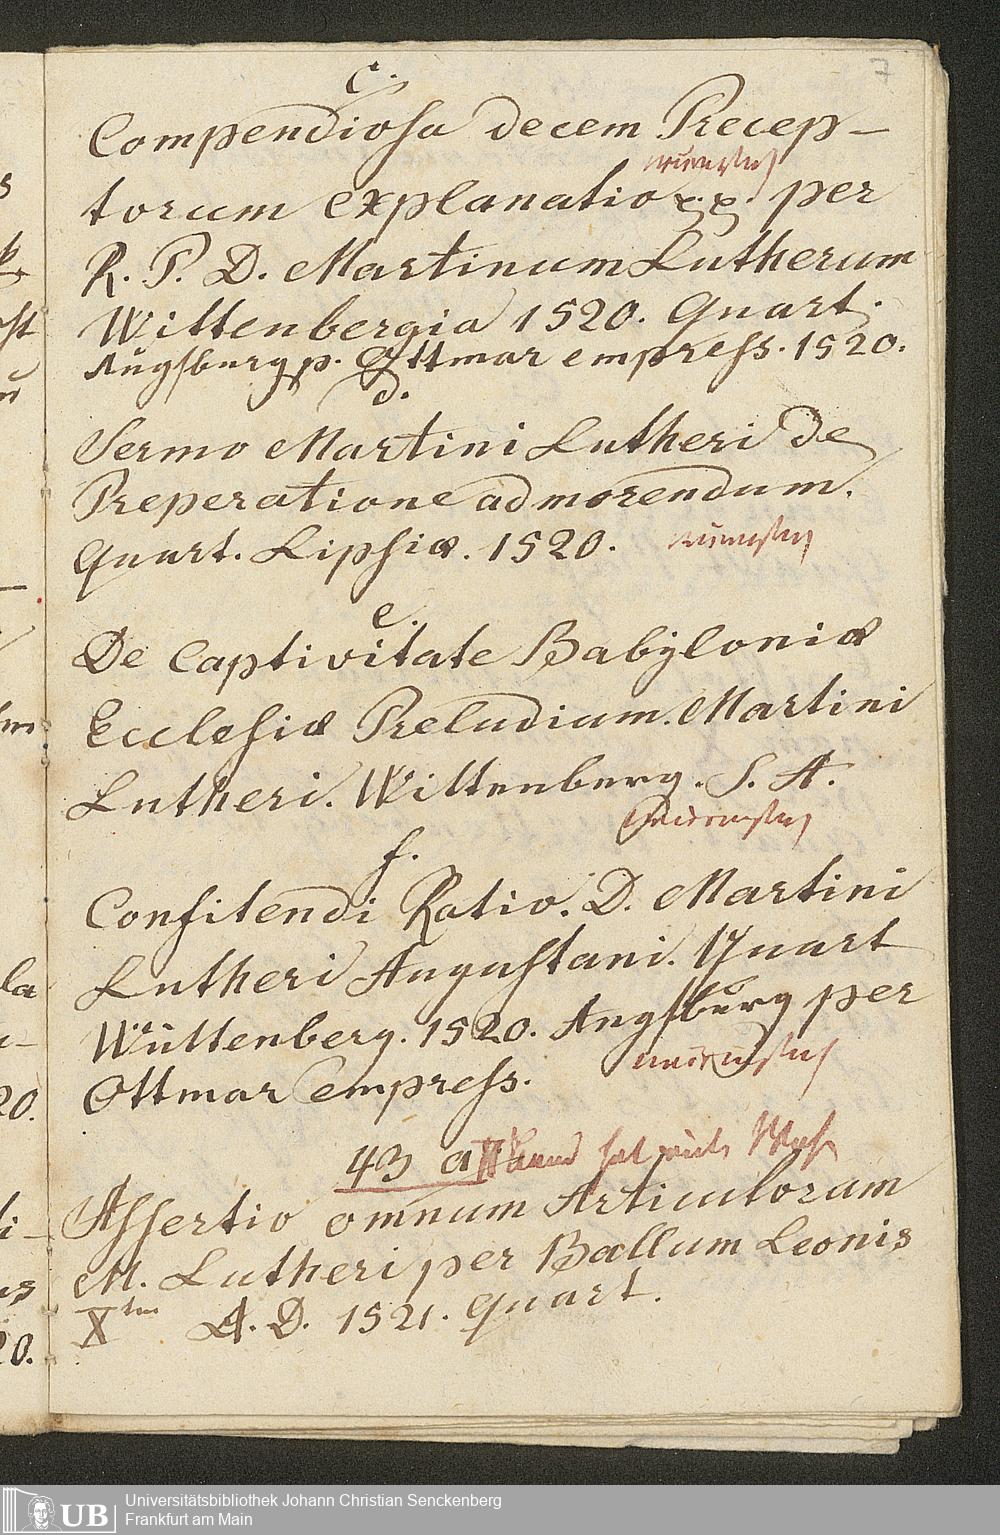 7
c.
Compendiosa decem Precep-
torum explanatio per
R. P. D. Martinum Lutherum
Wittenbergia 1520. Quart.
Augsburg p. Ottmar empress. 1520.
d.
Sermo Martini Lutheri de
Preperatione ad morendum.
Quart. Lipsiæ. 1520.
e.
De Captivitate Babyloniæ
Ecclesiæ Preludium. Martini
Lutheri. Wittenberg. S. A.
f.
Confitendi Ratio. D. Martini
Lutheri Augustani. Quart
Wüttenberg. 1520. Augsburg per
Ottmar empress.
43 a
hat
Assertio omnum Articulorum
M. Lutheri per Ballum Leonis
X A. D. 1521. Quart.
UB
Universitätsbibliothek Johann Christian Senckenberg
Frankfurt am Main